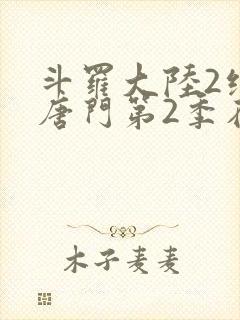 斗羅大陸2
唐門第2季
木子麦麦